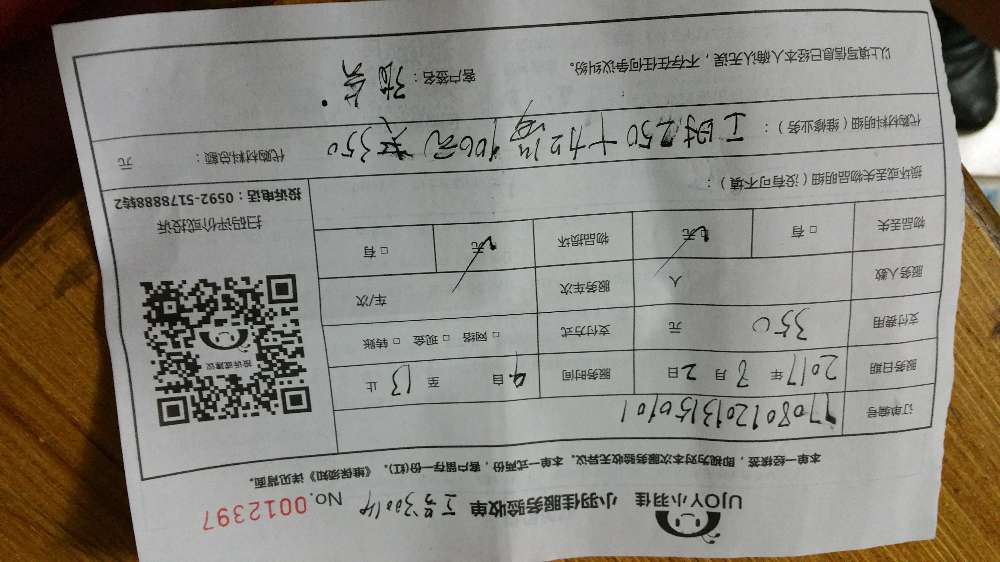 UJOY小羽佳 小羽佳服务验收单 工号30014 No. 0012397
本单一经核签,即视为对本次服务验收无异议。本单一式两份,客户留存一份(红)。《维保须知》详见背面。
订单编号 170801201315010101
服务日期 2017年8月2日 服务时间 自 9 至 13 止
支付费用 350 元 支付方式 □网络 □现金 □转账
服务人数 人 服务车次 车/次
物品丢失 □有 ☑无 物品损坏 ☑无 □有
投诉或建议
扫码评价或投诉
投诉电话:0592-5178888转2
损坏或丢失物品明细(没有可不填):
代购材料明细(维修业务): 工时250+加 100元 共350 代购材料总额: 元
以上填写信息已经本人确认无误,不存在任何争议纠纷。 客户签名: